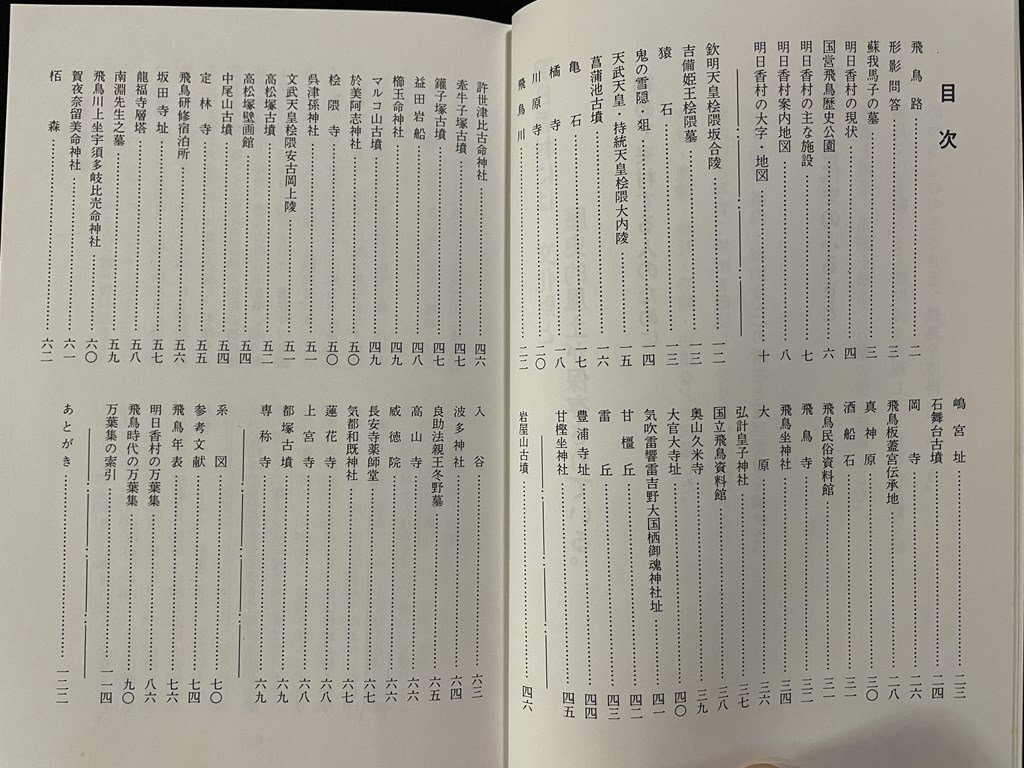 目次
飛鳥路……二
形影問答……三
蘇我馬子の墓……三
明日香村の現状……四
国営飛鳥歴史公園……六
明日香村の主な施設……七
明日香村案内地図……八
明日香村の大字・地図……十
欽明天皇桧隈坂合陵……一二
吉備姫王桧隈墓……一三
猿石……一三
鬼の雪隠・爼……一四
天武天皇・持統天皇桧隈大内陵……一五
菖蒲池古墳……一六
亀石……一七
橘寺……一八
川原寺……二〇
飛鳥川……二二
嶋宮址……二三
石舞台古墳……二四
岡寺……二六
飛鳥板蓋宮伝承地……二八
真神原……三〇
酒船石……三一
飛鳥民俗資料館……三一
飛鳥寺……三二
飛鳥坐神社……三四
大原……三六
弘計皇子神社……三七
国立飛鳥資料館……三八
奥山久米寺……三九
大官大寺址……四〇
気吹雷響雷吉野大国栖御魂神社址……四一
甘橿丘……四二
雷丘……四三
豊浦寺址……四四
甘樫坐神社……四五
岩屋山古墳……四六
許世津比古命神社……四六
牽牛子塚古墳……四七
鑵子塚古墳……四七
益田岩船……四八
櫛玉命神社……四九
マルコ山古墳……四九
於美阿志神社……五〇
桧隈寺……五〇
呉津孫神社……五一
文武天皇桧隈安古岡上陵……五一
高松塚古墳……五二
高松塚壁画館……五四
中尾山古墳……五四
定林寺……五五
飛鳥研修宿泊所……五六
坂田寺址……五七
龍福寺層塔……五八
南淵先生之墓……五九
飛鳥川上坐宇須多岐比売命神社……六〇
賀夜奈留美命神社……六一
栢森……六二
入谷……六三
波多神社……六四
良助法親王冬野墓……六五
高山寺……六六
威徳院……六六
長安寺薬師堂……六七
気都和既神社……六七
蓮花寺……六八
上宮寺……六八
都塚古墳……六九
専称寺……六九
系図……七〇
参考文献……七四
飛鳥年表……七六
明日香村の万葉集……八六
飛鳥時代の万葉集……九〇
万葉集の索引……一一四
あとがき……一二二